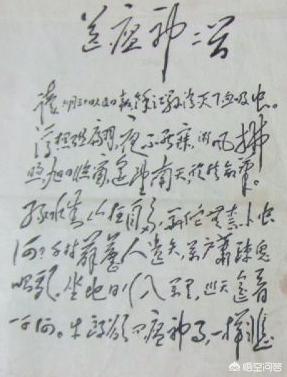 送瘟神二首
读 余江县消灭了血吸虫。
浮想联翩,夜不能寐,微风拂
煦,旭日临窗,遥望南天,欣然命笔。
绿水青山枉自多,华佗无奈小虫
何?千村薜荔人遗矢,万户萧疏鬼
唱歌。坐地日行八万里,巡天遥看
一千河。牛郎欲问瘟神事,一样悲
悟空问答